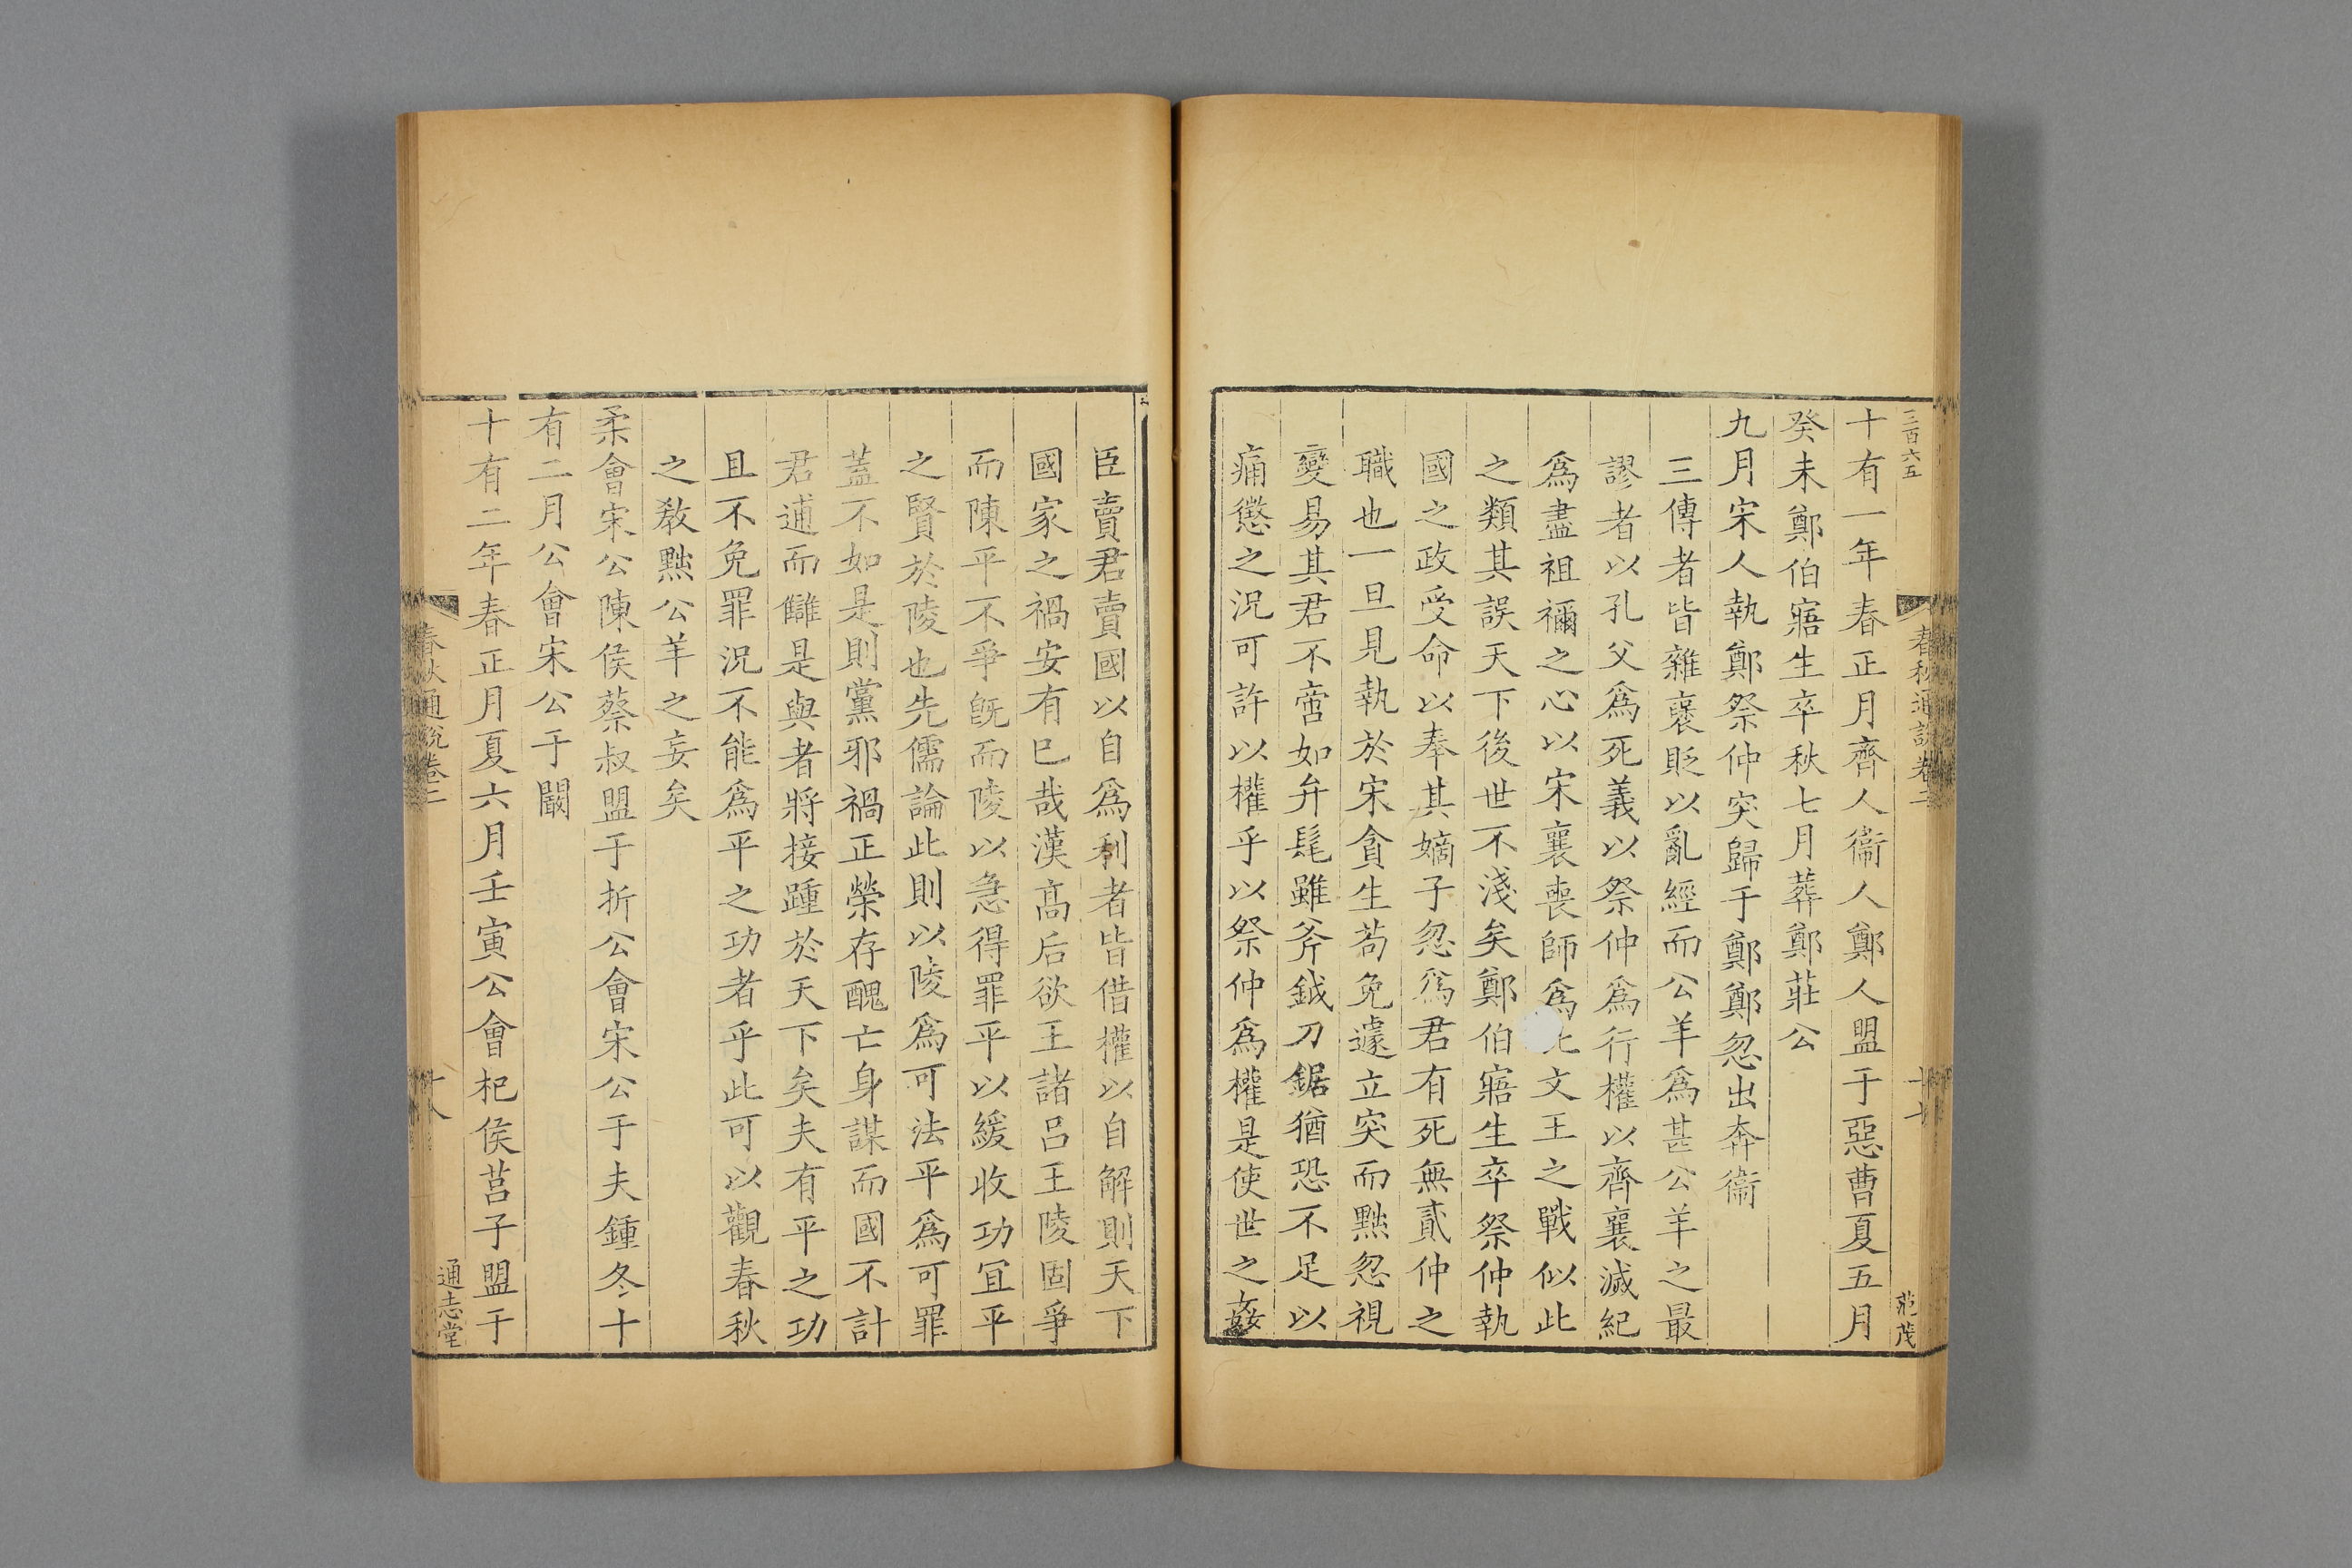 三百六五
春秋通説卷二
十七
范茂
十有一年春正月齊人衞人鄭人盟于惡曹夏五月
癸未鄭伯寤生卒秋七月葬鄭莊公
九月宋人執鄭祭仲突歸于鄭鄭忽出奔衞
三傳者皆雜襃貶以亂經而公羊爲甚公羊之最
謬者以孔父爲死義以祭仲爲行權以齊襄滅紀
爲盡祖禰之心以宋襄喪師爲文王之戰似此
之類其誤天下後世不淺矣鄭伯寤生卒祭仲執
國之政受命以奉其嫡子忽爲君有死無貳仲之
職也一旦見執於宋貪生苟免遽立突而黜忽視
變易其君不啻如弁髦雖斧鉞刀鋸猶恐不足以
痛懲之況可許以權乎以祭仲爲權是使世之姦
臣賣君賣國以自爲利者皆借權以自解則天下
國家之禍安有巳哉漢高后欲王諸呂王陵固爭
而陳平不爭旣而陵以急得罪平以緩收功冝平
之賢於陵也先儒論此則以陵爲可法平爲可罪
蓋不如是則黨邪禍正榮存醜亡身謀而國不計
君逋而讎是與者將接踵於天下矣夫有平之功
且不免罪況不能爲平之功者乎此可以觀春秋
之敎黜公羊之妄矣
柔會宋公陳侯蔡叔盟于折公會宋公于夫鍾冬十
有二月公會宋公于闞
十有二年春正月夏六月壬寅公會杞侯莒子盟于
春秋通説卷二
十八
通志堂